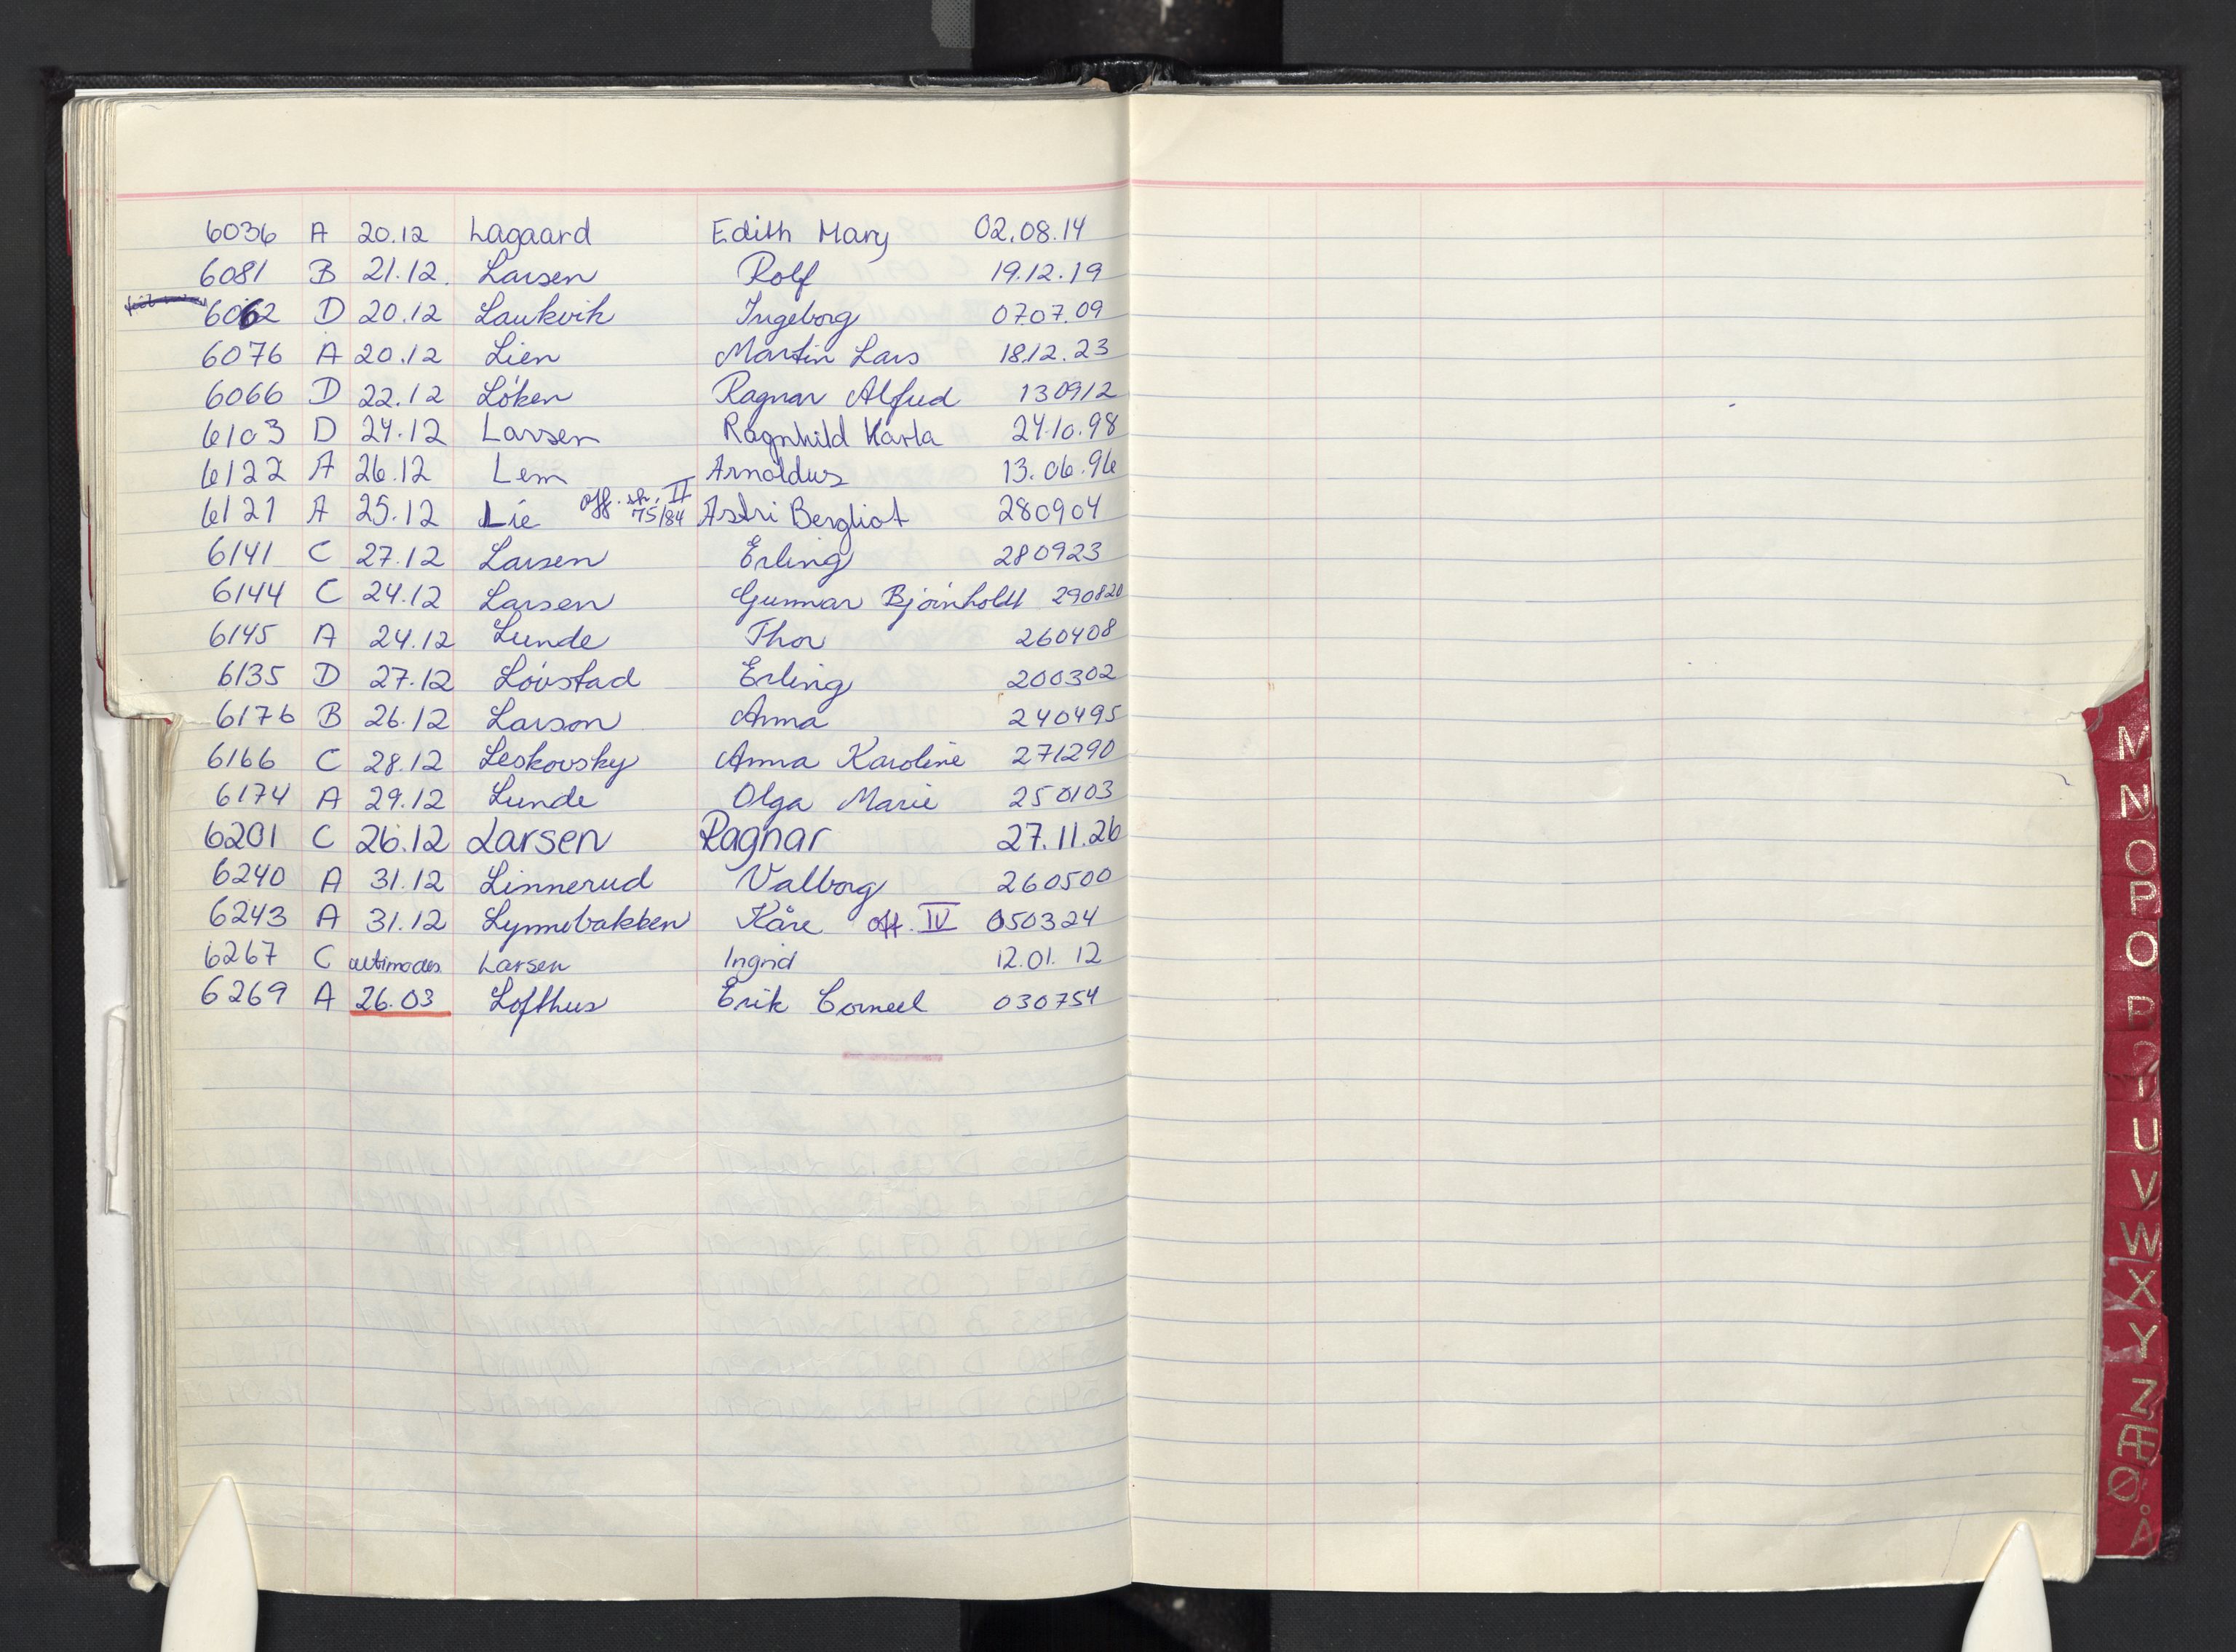 6036 A 20.12 Lagaard Edith Mary 02.08.14
6081 B 21.12. Larsen Rolf 19.12.19
6062 D 20.12 Laukvik Ingeborg 07.07.09
6076 A 20.12 Lien Martin Lars 18.12.23
6066 D 22.12 Löken Ragnar Alfred 130912
6103 D 24.12 Larsen Ragnhild Karla 24.10.98
6122 A 26.12 Lem Arnoldus 13.06.96
6121 A 25.12 Lie off. sk. II 75/84 Astri Bergliot 280904
6141 C 27.12 Larsen Erling 280923
6144 C 24.12 Larsen Gunnar Bjørnholdt 290820
6145 A 24.12 Lunde Thor 260408
6135 D 27.12 Lövstad Erling 200302
6176 B 26.12 Larson Anna 240495
6166 C 28.12 Leskovsky Anna Karoline 271290
6174 A 29.12 Lunde Olga Marie 250103
6201 C 26.12 Larsen Ragnar 27.11.26
6240 A 31.12 Linnerud Valborg 260500
6243 A 31.12 Lynnebakken Kåre off. IV 050324
6267 C Larsen Ingrid 12.01.12
6269 A 26.03 Lofthus Erik Corneel 030754
M
N
O
P
Q
R
T
U
V
W
X
Y
Z
Æ
Ø
Å